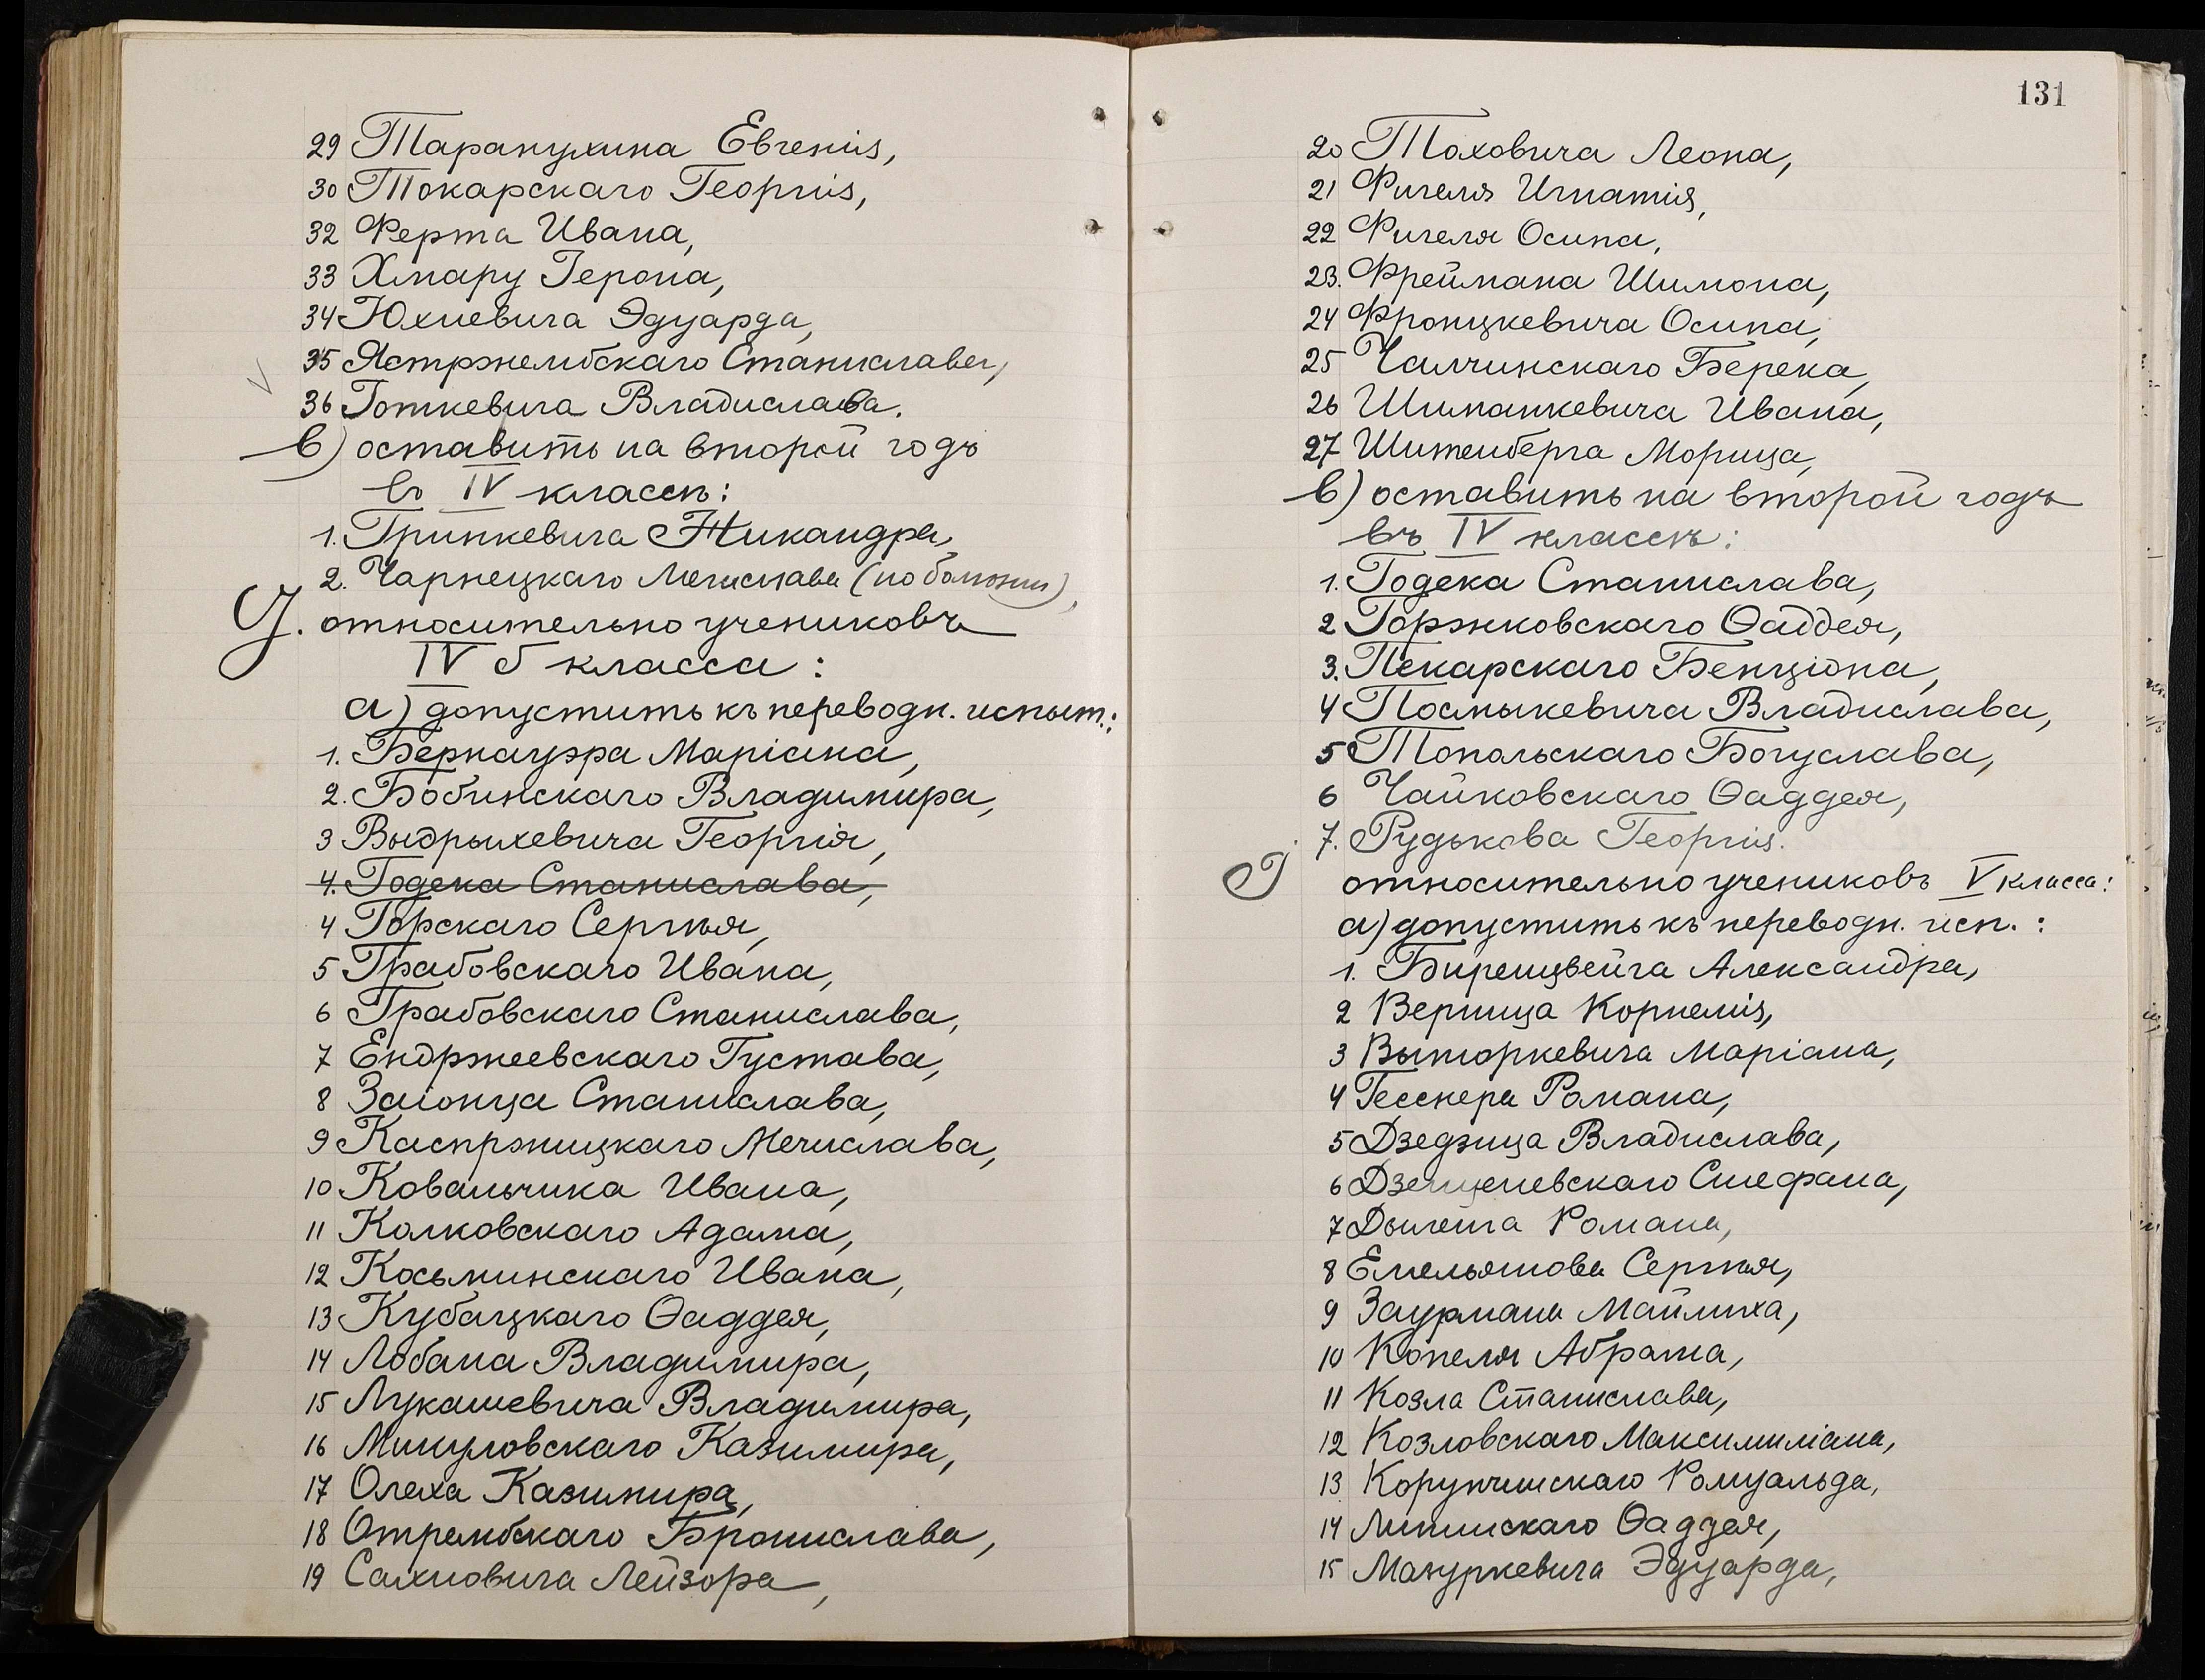 29 Таранухина Евгенія,
30 Токарскаго Георгія,
32 Ферта Ивана,
33 Хмару Герона,
34 Юхневича Эдуарда,
35 Ястржембскаго Станислава,
36 Готкевича Владислава.
в) оставить на второй годъ
въ IV классѣ:
1. Гринкевича Никандра,
2. Чарнецкаго Мечислава (по болѣзни),
У. относительно учениковъ
IV б класса:
а) допустить къ переводн. испыт.:
1. Бернауэра Маріана,
2. Бобинскаго Владимира,
3 Выдрыхевича Георгія,
4. Годека Станислава,
4 Горскаго Сергѣя,
5 Грабовскаго Ивана,
6 Грабовскаго Станислава,
7 Ендржеевскаго Густава,
8 Заіонца Станислава,
9 Каспржицкаго Мечислава,
10 Ковальчика Ивана,
11 Колковскаго Адама,
12 Косьминскаго Ивана,
13 Кубацкаго Ѳаддея,
14 Лобана Владимира,
15 Лукашевича Владимира,
16 Микуловскаго Казимира,
17 Олеха Казимира,
18 Отрембскаго Бронислава,
19 Сахновича Лейзора,
131
20 Тоховича Леона,
21 Фигеля Игнатія,
22 Фигеля Осипа,
23. Фреймана Шимона,
24 Фронцкевича Осипа,
25 Чалчинскаго Берека,
26 Шиманкевича Ивана,
27 Шитенберга Морица,
в) оставить на второй годъ
въ IV классѣ:
1. Годека Станислава,
2 Горжковскаго Ѳаддея,
3. Пекарскаго Бенціона,
4 Посмыкевича Владислава,
5 Топольскаго Богуслава,
6 Чайковскаго Ѳаддея,
7. Рудькова Георгія.
относительно учениковъ V класса:
а) допустить къ переводн. исп.:
1. Биренцвейга Александра,
2 Верница Корнелія,
3 Выторкевича Маріана,
4 Гесснера Романа,
5 Дзедзица Владислава,
6 Стефана,
7 Романа,
8 Емельянова Сергѣя,
9 Заурмана Маймиха,
10 Копеля Абрама,
11 Козла Станислава,
12 Козловскаго Максимиліана,
13 Корупчинскаго Ромуальда,
14 Липинскаго Ѳаддея,
15 Мазуркевича Эдуарда,